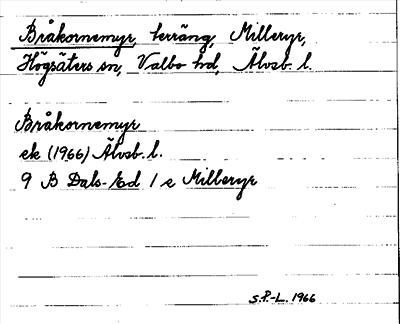 Bråkornemyr, terräng, Milleryr,
Högsäters sn, Valbo hd, Älvsb. l.
Bråkornemyr
ek (1966) Älvsb. l.
9 B Dals-Ed 1 e Milleryr
S.P.-L. 1966